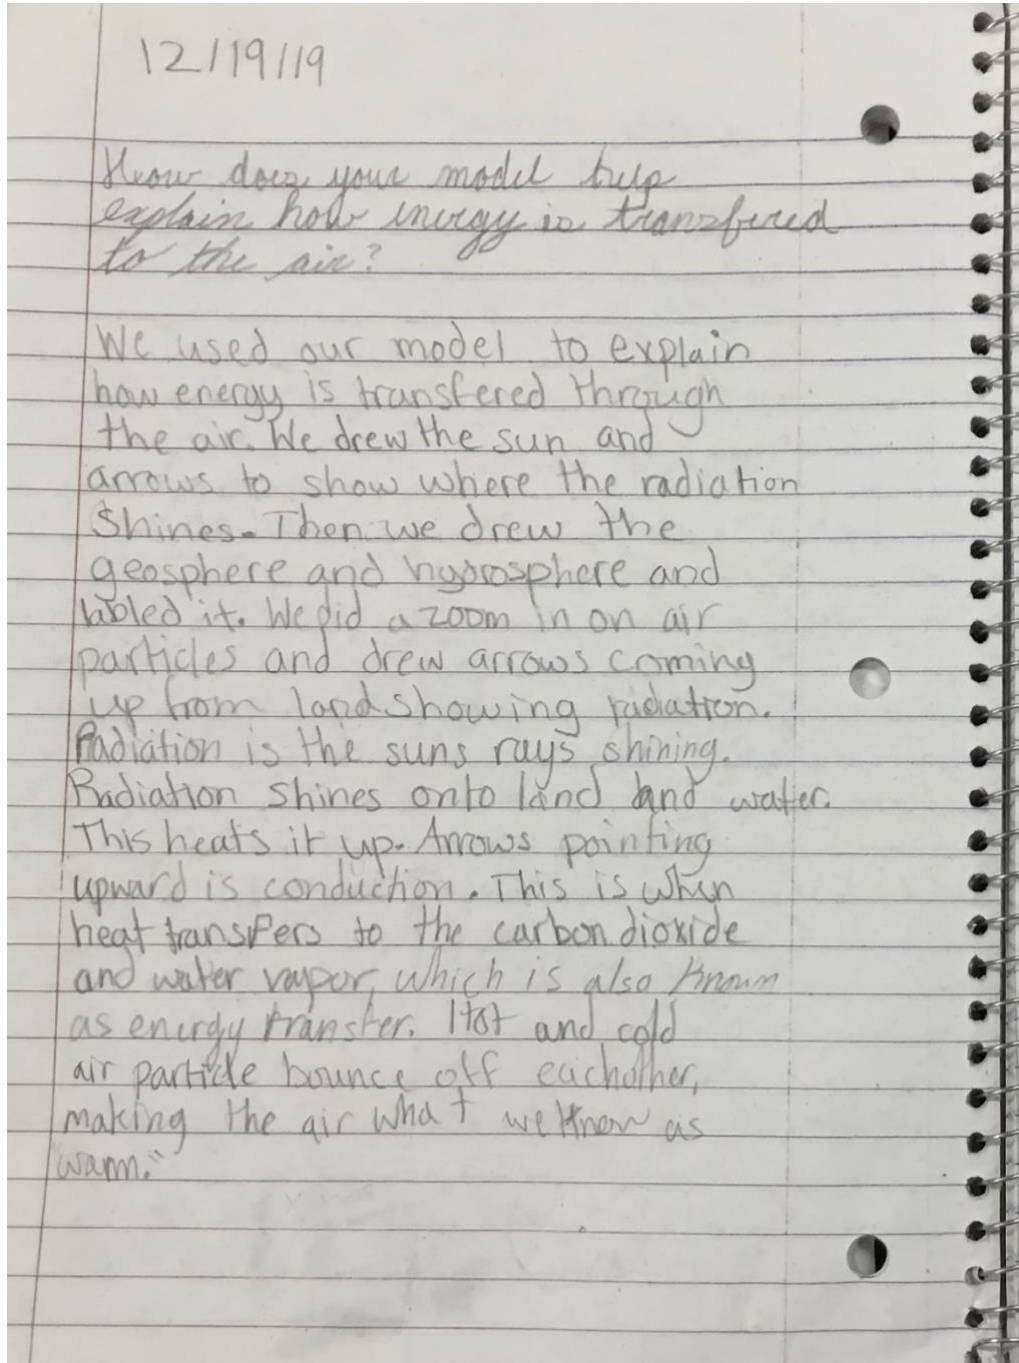 12/19/19
How does your model help
explain how energy is transfered
to the air?
We used our model to explain
how energy is transfered through
the air. We drew the sun and
arrows to show where the radiation
shines. Then we drew the
geosphere and hydrosphere and
labled it. We did a zoom in on air
particles and drew arrows coming
up from land showing radiation.
Radiation is the suns rays shining.
Radiation shines onto land and water.
This heats it up. Arrows pointing
upward is conduction. This is when
heat transfers to the carbon dioxide
and water vapor, which is also known
as energy transfer. Hot and cold
air particle bounce off eachother,
making the air what we know as
"warm."